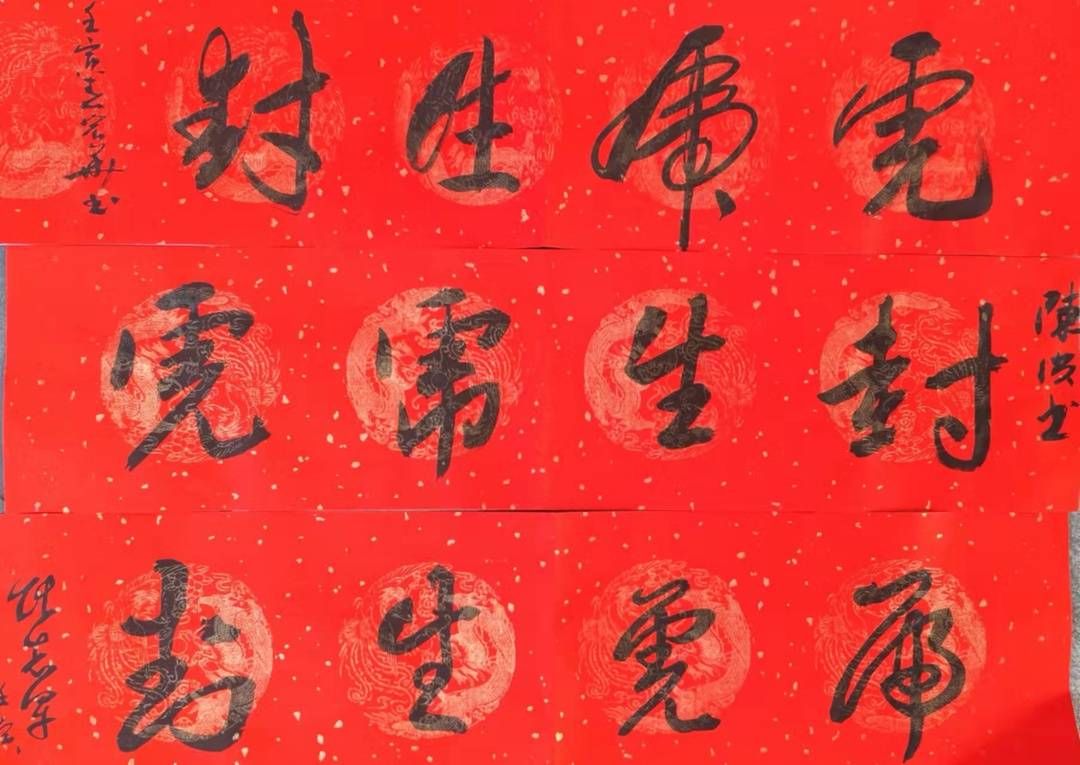 虎虎生封
壬寅 书
虎虎生封
陳 书
虎虎生封
志军
壬寅